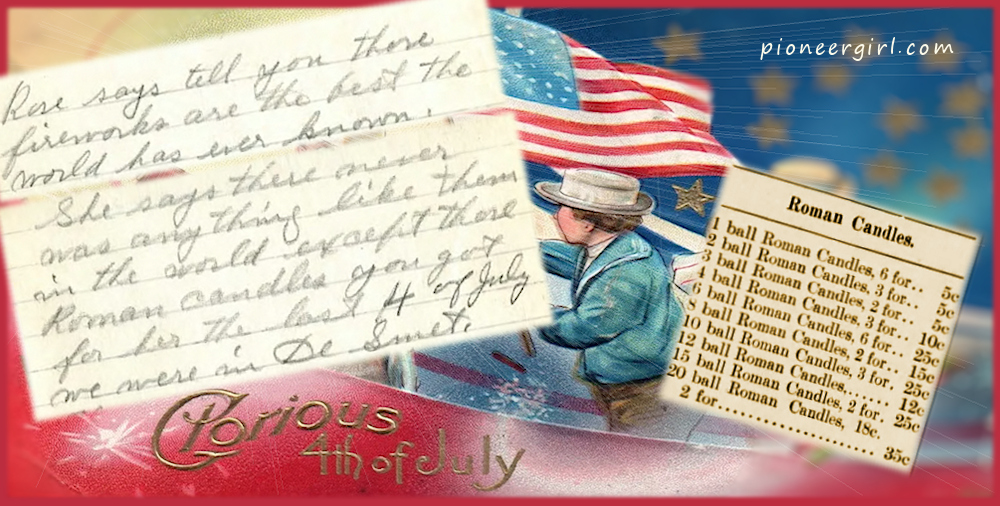 pioneergirl.com
Rose says tell you those
fireworks are the best the
world has ever known.
She says there never
was anything like them
in the world except those
Roman candles you got
for her the last 4 of July
we were in De Smet.
Glorious
4th of July
Roman Candles.
1 ball Roman Candles, 6 for.. 5c
2 ball Roman Candles, 3 for.. 5c
3 ball Roman Candles, 2 for.. 5c
4 ball Roman Candles, 3 for.. 10c
6 ball Roman Candles, 6 for.. 25c
8 ball Roman Candles, 2 for.. 15c
10 ball Roman Candles, 3 for. 25c
12 ball Roman Candles....... 12c
15 ball Roman Candles, 2 for. 25c
20 ball Roman Candles, 18c.
2 for..................... 35c